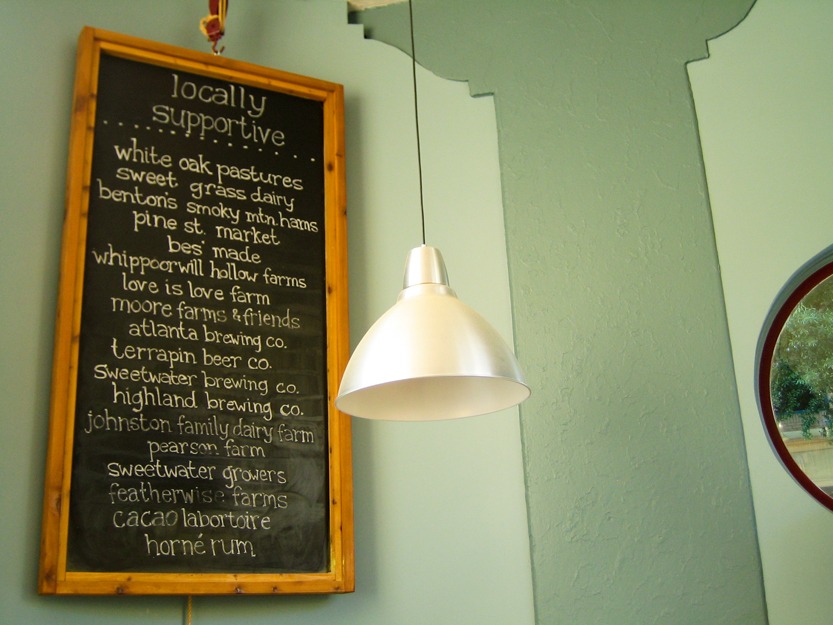 locally
supportive
white oak pastures
sweet grass dairy
benton's smoky mtn. hams
pine st. market
bes' made
whippoorwill hollow farms
love is love farm
moore farms & friends
atlanta brewing co.
terrapin beer co.
sweetwater brewing co.
highland brewing co.
johnston family dairy farm
pearson farm
sweetwater growers
featherwise farms
cacao labortoire
horné rum